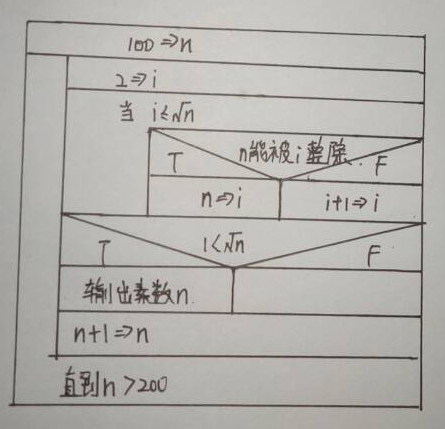 100⇒n
2⇒i
当 i≤√n
n能被i整除
T F
n⇒i i+1⇒i
i<√n
T F
输出素数n
n+1⇒n
直到n>200